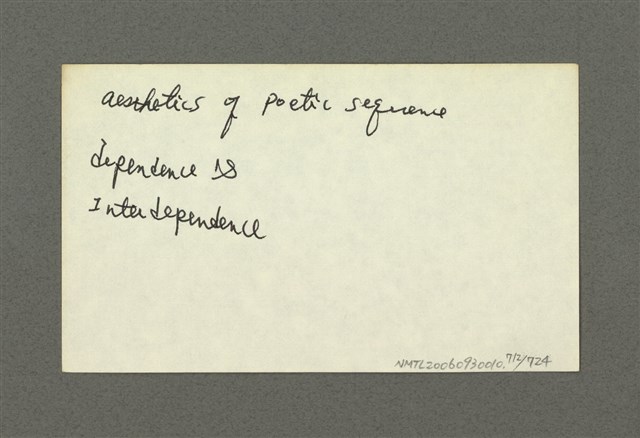 aesthetics of poetic sequence
dependence vs
Interdependence
NMTL20060930010.712/724